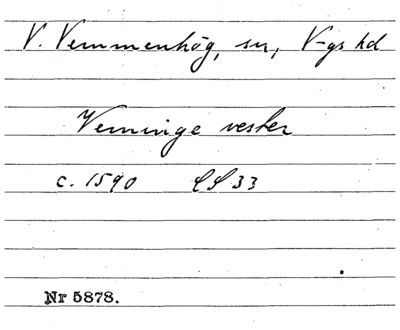 V. Vemmenhög, sn, V-gs hd
Vemninge vester
c. 1590 LS 33
Nr 5878.